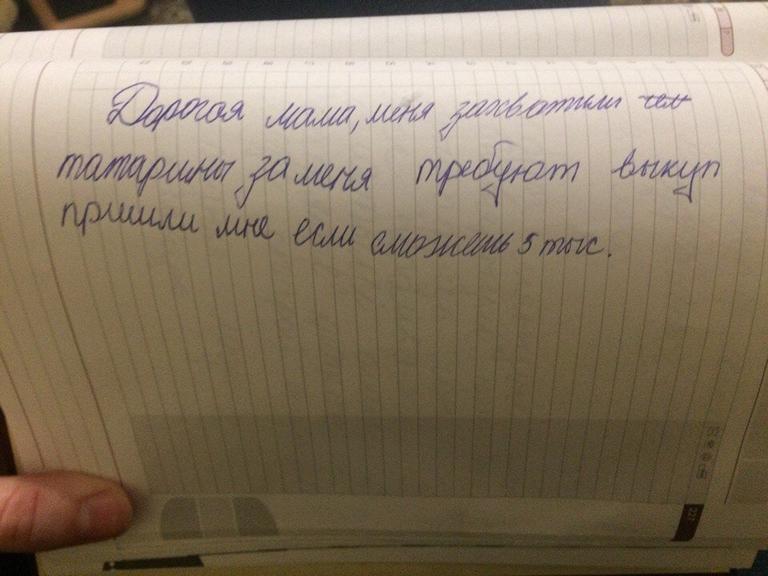 Дорогая мама, меня захватили
татарины за меня требуют выкуп
пришли мне если сможешь 5 тыс.
227